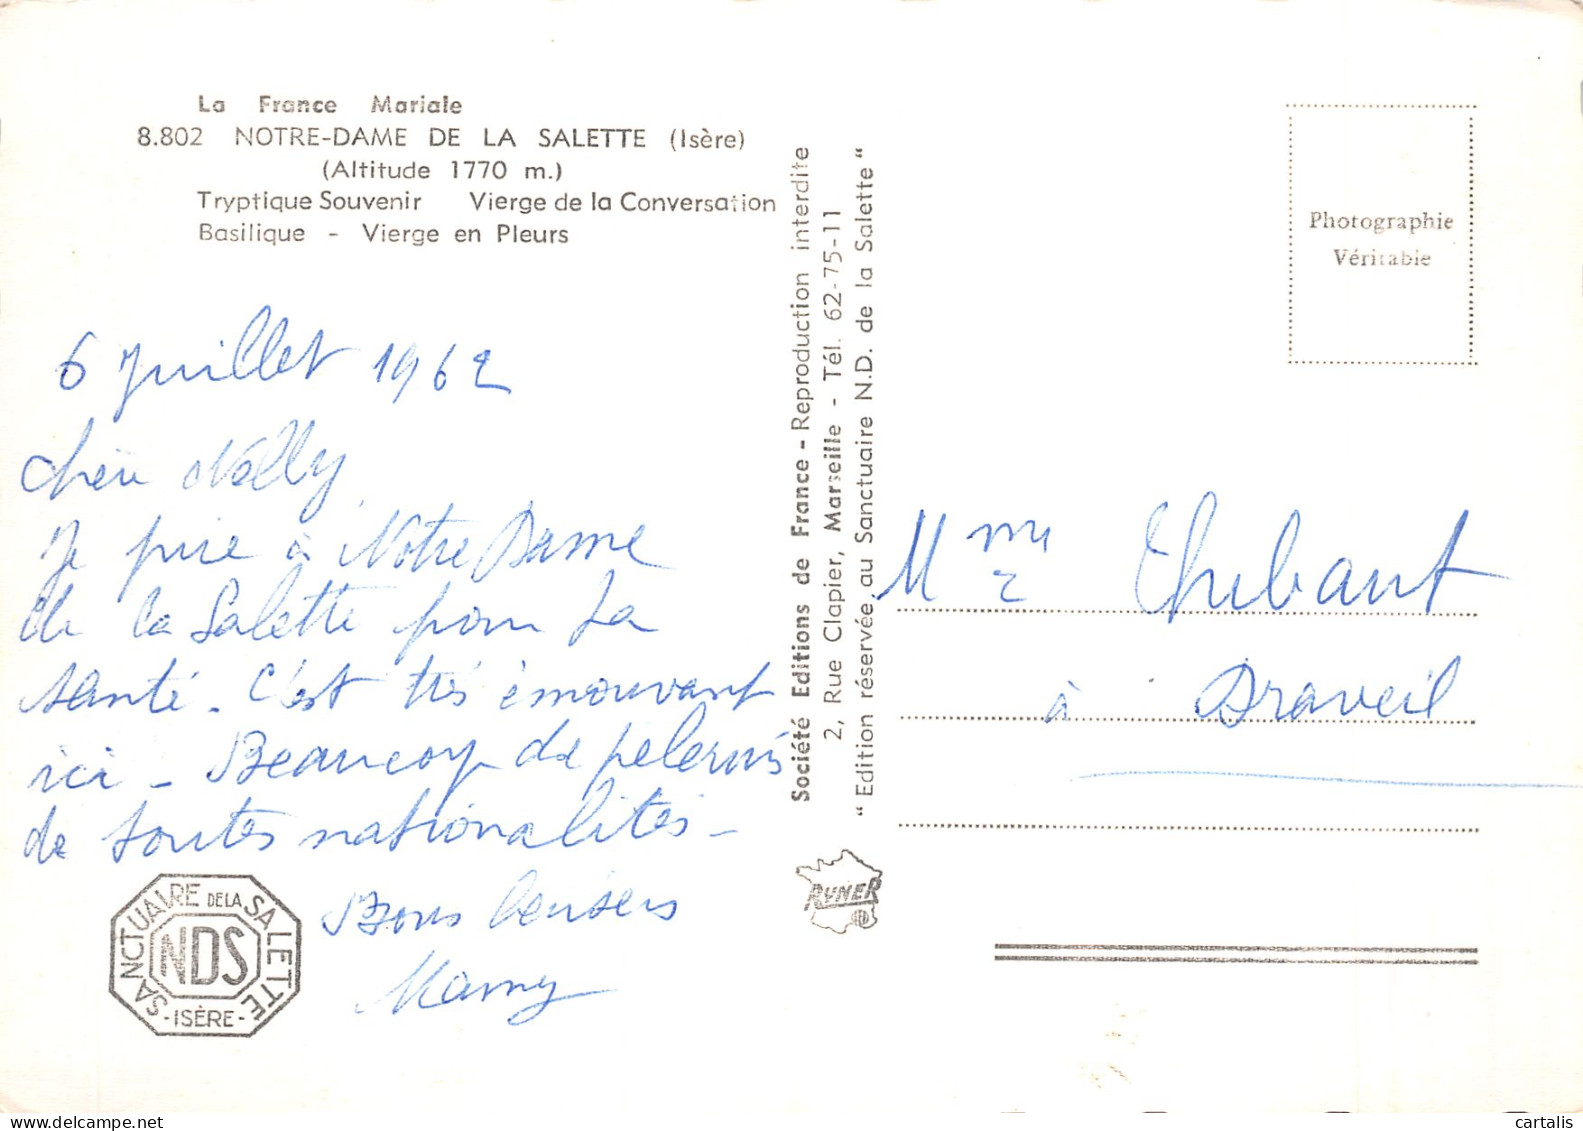 La France Mariale
8.802 NOTRE-DAME DE LA SALETTE (Isère)
(Altitude 1770 m.)
Tryptique Souvenir Vierge de la Conversation
Basilique - Vierge en Pleurs
6 Juillet 1962
Chère Nelly
Je prie à Notre Dame
de la Salette pour ta
santé - C'est très émouvant
ici - Beaucoup de pelerins
de toutes nationalités -
Bons baisers
Mamy
SANCTUAIRE DE LA SALETTE
NDS
- ISÈRE -
Société Editions de France - Reproduction interdite
2, Rue Clapier, Marseille - Tél. 62-75-11
"Edition réservée au Sanctuaire N.D. de la Salette"
RYNER
Photographie
Véritable
Mme Thibaut
à Draveil
cartalis